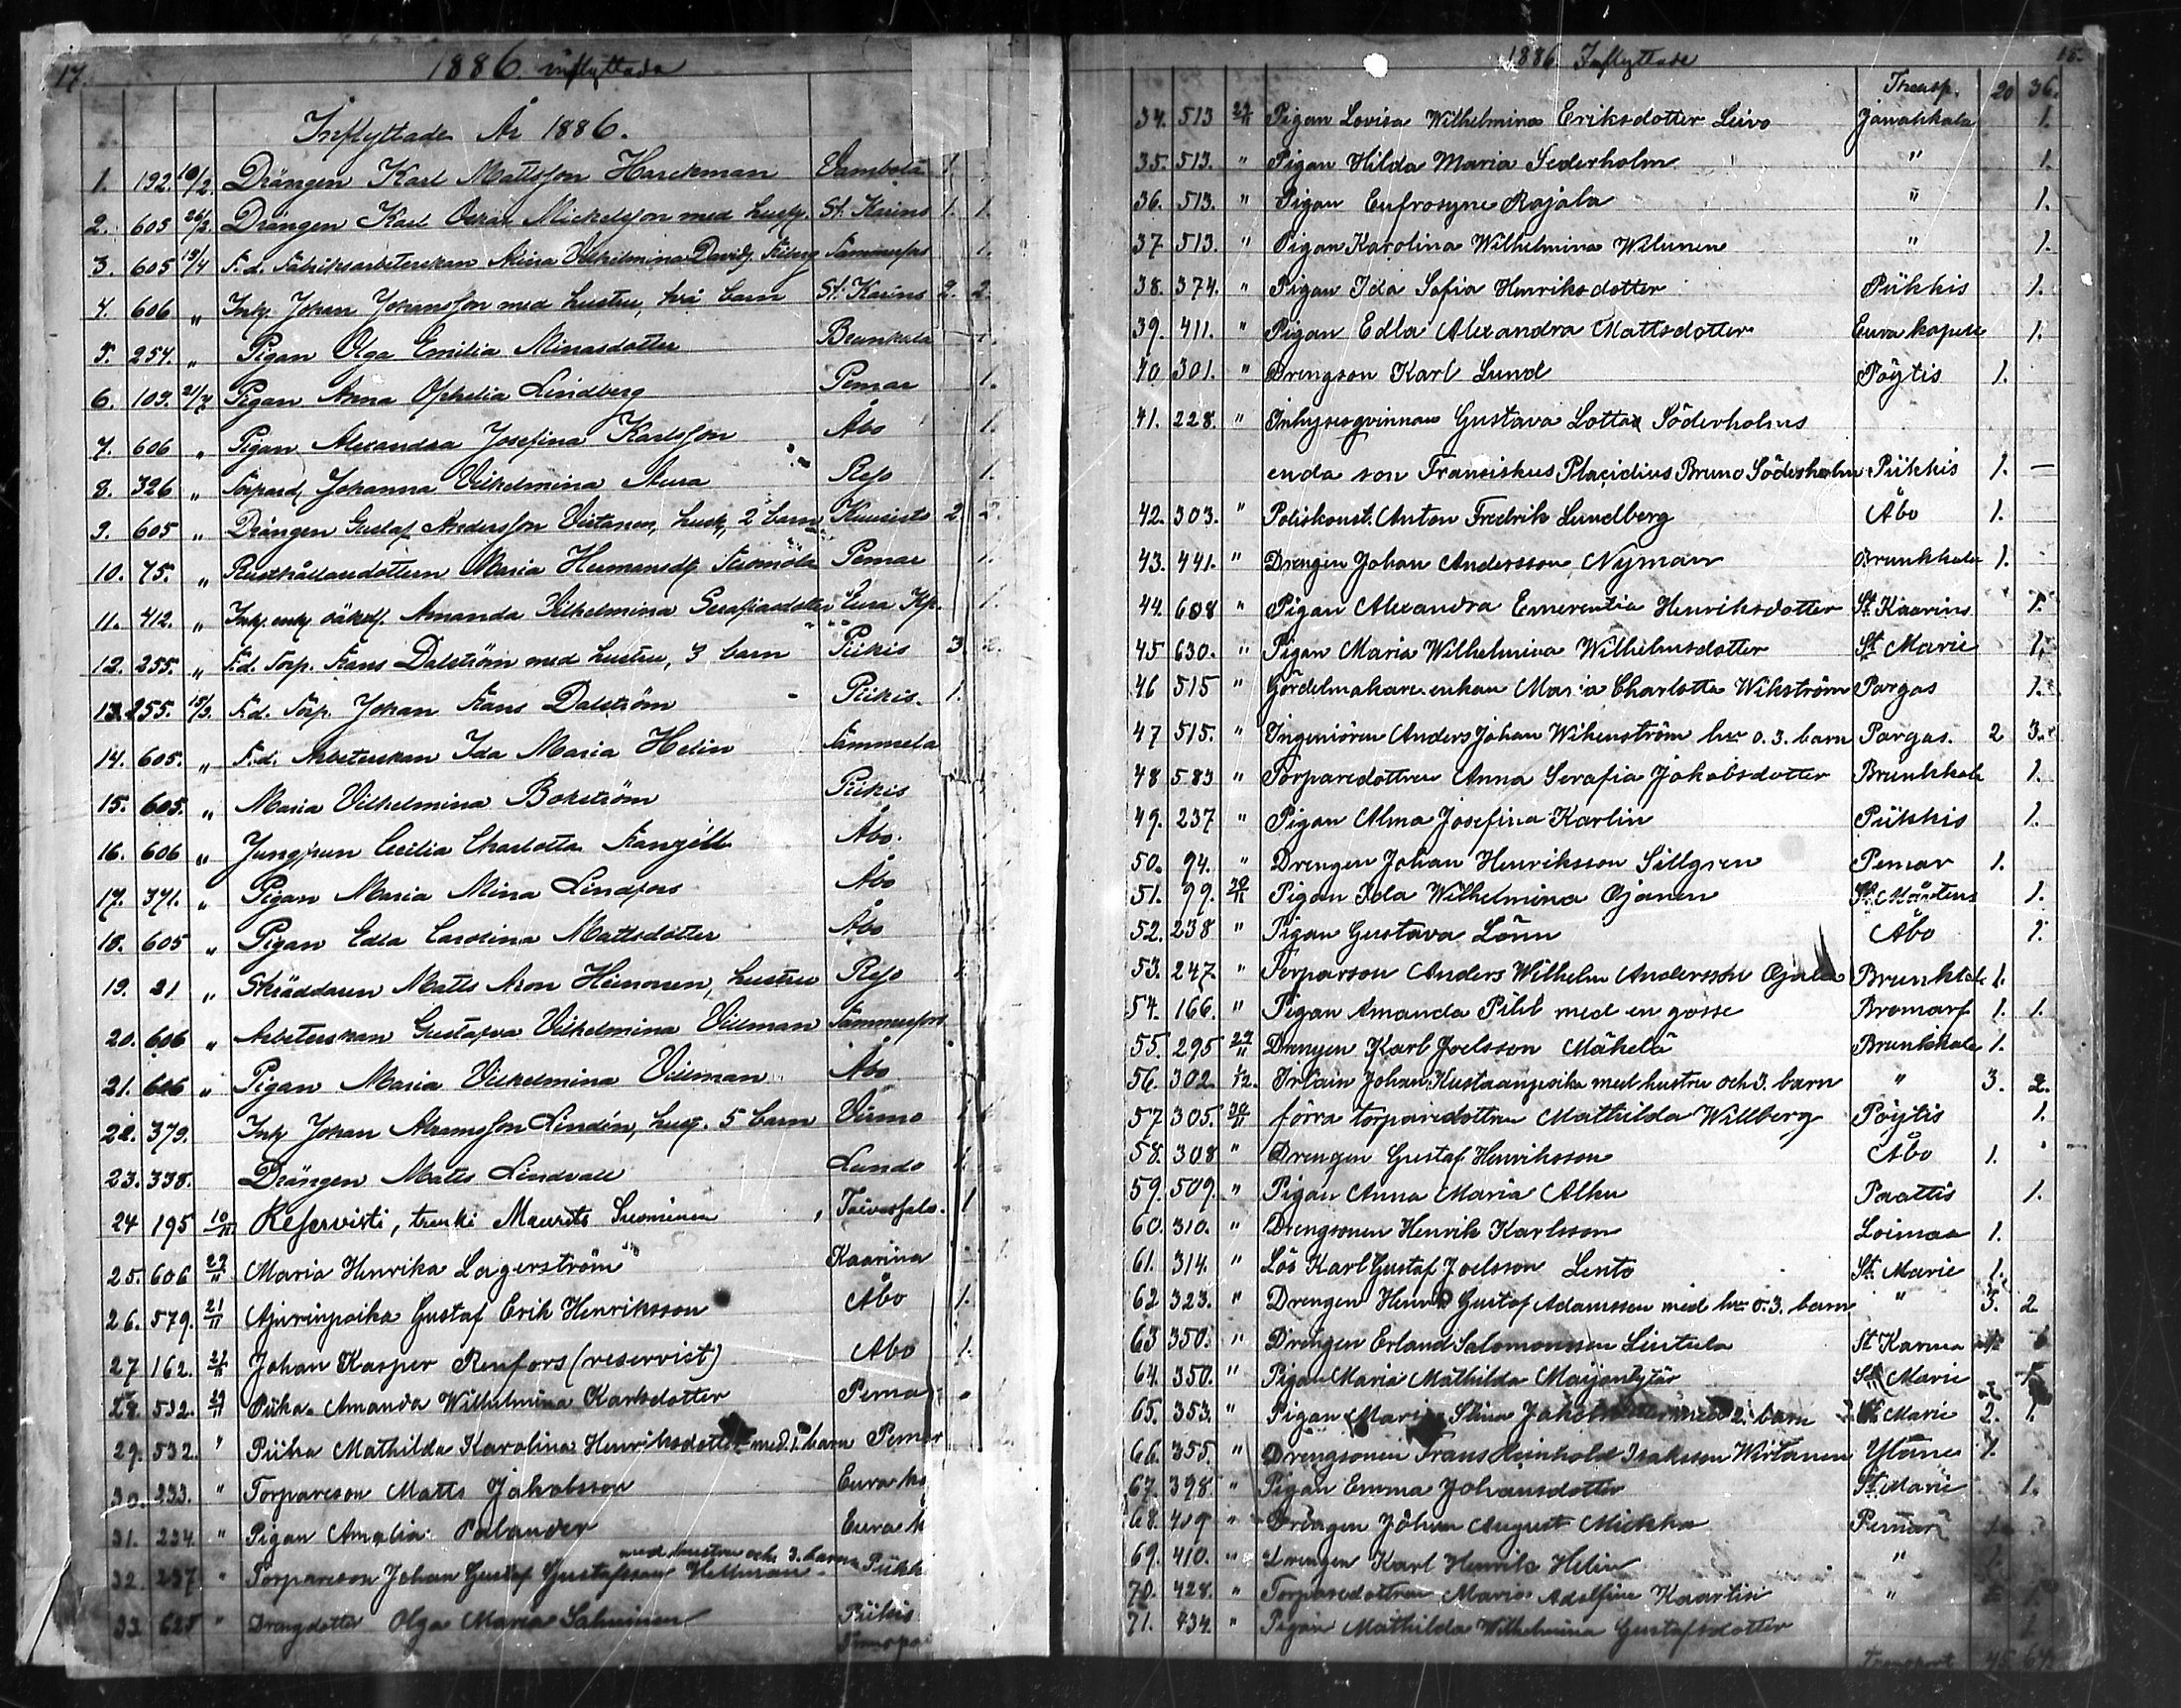 17.
1886. inflyttade
Inflyttade År 1886.
1. 192. 16/2. Drängen Karl Mattsson Harckman Vambola 1.
2. 603 26/2. Drängen Karl Oskar Mickelsson med hustr. St. Karins 1. 1.
3. 605 13/4 F.d. Fabriksarbeterskan Miina Vilhelmina Davidsd. Tammerfors 1.
4. 606 " Inh. Johan Johansson med hustru, två barn St. Karins 2. 2.
5. 254. " Pigan Olga Emilia Minasdotter Brunkala 1.
6. 109. 21/7 Pigan Anna Ophelia Lindberg Pemar 1.
7. 606 " Pigan Alexandra Josefina Karlsson Åbo 1.
8. 326 " Torpard. Johanna Vilhelmina Aura Reso 1.
9. 605 " Drängen Gustaf Andersson Virtanen, hust, 2 barn Kuusisto 2 2.
10. 75. " Rusthållaredottern Maria Hermansd. Pemar 1.
11. 412. " Inh. enk. Amanda Vilhelmina Serafiasdotter Eura Kp. 1.
12. 255. " F.d. Torp. Frans Dalström med hustru, 3 barn Piikis 3 2.
13. 255. 15/3. F.d. Torp. Johan Frans Dalström Piikis. 1.
14. 605. " F.d. Arbeterskan Ida Maria Helin Tammela
15. 605. " Maria Vilhelmina Bokström Piikis
16. 606 " Jungfrun Cecilia Charlotta Åbo.
17. 371. " Pigan Maria Mina Lindfors Åbo
18. 605 " Pigan Edla Carolina Mattsdotter Åbo
19. 21 " Skräddaren Matts Aron Heinonen, hustru Reso
20. 606 " Arbeterskan Gustafva Vilhelmina Villman Tammerfors
21. 606 " Pigan Maria Vilhelmina Villman Åbo
22. 379. Inh Johan Abramsson Lindén, hust. 5 barn Virmo
23. 338. Drängen Matts Lindvall Lundo 1.
24 195 10/11 Reservisti, trenki Maurits Suominen Taivassalo. 1
25. 606 29/11 Maria Henrika Lagerström Kaarina 1.
26. 579. 21/11 Ajurinpoika Gustaf Erik Henriksson Åbo 1.
27 162. Johan Kasper Renfors (reservist) Åbo 1.
28. 532. 29/11 Piika. Amanda Wilhelmina Karlsdotter Pemar
29. 532. " Piika Mathilda Karolina Henriksdotter med 1. barn Pemar
30. 233. " Torpareson Matts Jakobsson Eura
31. 234. " Pigan Amalia Palander Eura
med hustru och 3. barn
32. 237 " Torpareson Johan Gustaf Gustafsson Hellman Piikk
33. 625 " Drengdotter Olga Maria Salminen Piikis
Transpo
1886. Inflyttade
18.
Transp. 20 36.
34. 513 29/11 Pigan Lovisa Wilhelmina Eriksdotter Leivo Janakkala 1.
35. 513. " Pigan Hilda Maria Sederholm " 1.
36. 513. " Pigan Eufrosyne Rajala " 1.
37 513. " Pigan Karolina Wilhelmina Wilunen " 1.
38. 374. " Pigan Ida Sofia Henriksdotter Piikkis 1.
39. 411. " Pigan Edla Alexandra Mattsdotter Eura kapell 1.
40 301. " Drengson Karl Lund Pöytis 1.
41. 228. " Inhysesqvinnan Gustava Lotta Söderholms
enda son Franciskus Placidius Bruno Söderholm Piikkis 1. —
42. 303. " Poliskonst. Anton Fredrik Lundberg Åbo 1.
43. 441. " Drengen Johan Andersson Nyman Brunkkala 1.
44. 608 " Pigan Alexandra Emerentia Henriksdotter St. Kaarins 1.
45 630. " Pigan Maria Wilhelmina Wilhelmsdotter St Marie 1.
46 515 " Gördelmakare enkan Maria Charlotta Wikström Pargas 1.
47 515. " Ingeniören Anders Johan Wikenström hu o. 3. barn Pargas. 2 3.
48 583 " Torparedottren Anna Serafia Jakobsdotter Brunkkala 1.
49. 237 " Pigan Alma Josefina Karlin Piikkis 1.
50. 94. " Drengen Johan Henriksson Sillgren Pemar 1.
51. 99. Pigan Ida Wilhelmina Ojanen St. Mårtens 1.
52. 238 " Pigan Gustava Lönn Åbo 1.
53. 247 " Torparson Anders Wilhelm Andersson Ojala Brunkkala 1.
54. 166. " Pigan Amanda Pihl med en gosse Bromarf 1. 1.
55. 295 29/11 Drengen Karl Joelsson Mäkelä Brunkkala 1.
56. 302. 1/12. Irtain Johan Kustaanpoika med hustru och 3. barn " 3. 2.
57 305. förra torparedottren Mathilda Willberg Pöytis 1.
58. 308 " Drengen Gustaf Henriksson Åbo 1.
59. 509. " Pigan Anna Maria Alku Paattis 1.
60. 310. " Drengsonen Henrik Karlsson Loimaa 1.
61. 314. " Lös Karl Gustaf Joelsson Lento St. Marie 1.
62 323. " Drengen Henrik Gustaf Adamsson med hu o. 3. barn " 3. 2
63 350. " Drengen Erland Salomonsson Lintula St Karina
64. 350. " Pigan Maria Mathilda Maijantytär St Marie 1.
65. 353. " Pigan Maria Stina Jakobsdotter med 2. barn St Marie 2. 1.
66. 355. " Drengsonen Frans Reinhold Isaksson Wirtanen Yläne 1.
67. 398. " Pigan Emma Johansdotter St. Marie 1.
68. 409 " Drengen Johan August Mickka Pemar
69. 410. " Drengen Karl Henrik Helin "
70. 428. " Torparedottren Maria Adolfina Kaartin " 1.
71. 434. " Pigan Mathilda Wilhelmina Gustafsdotter 1.
Transport 45 64